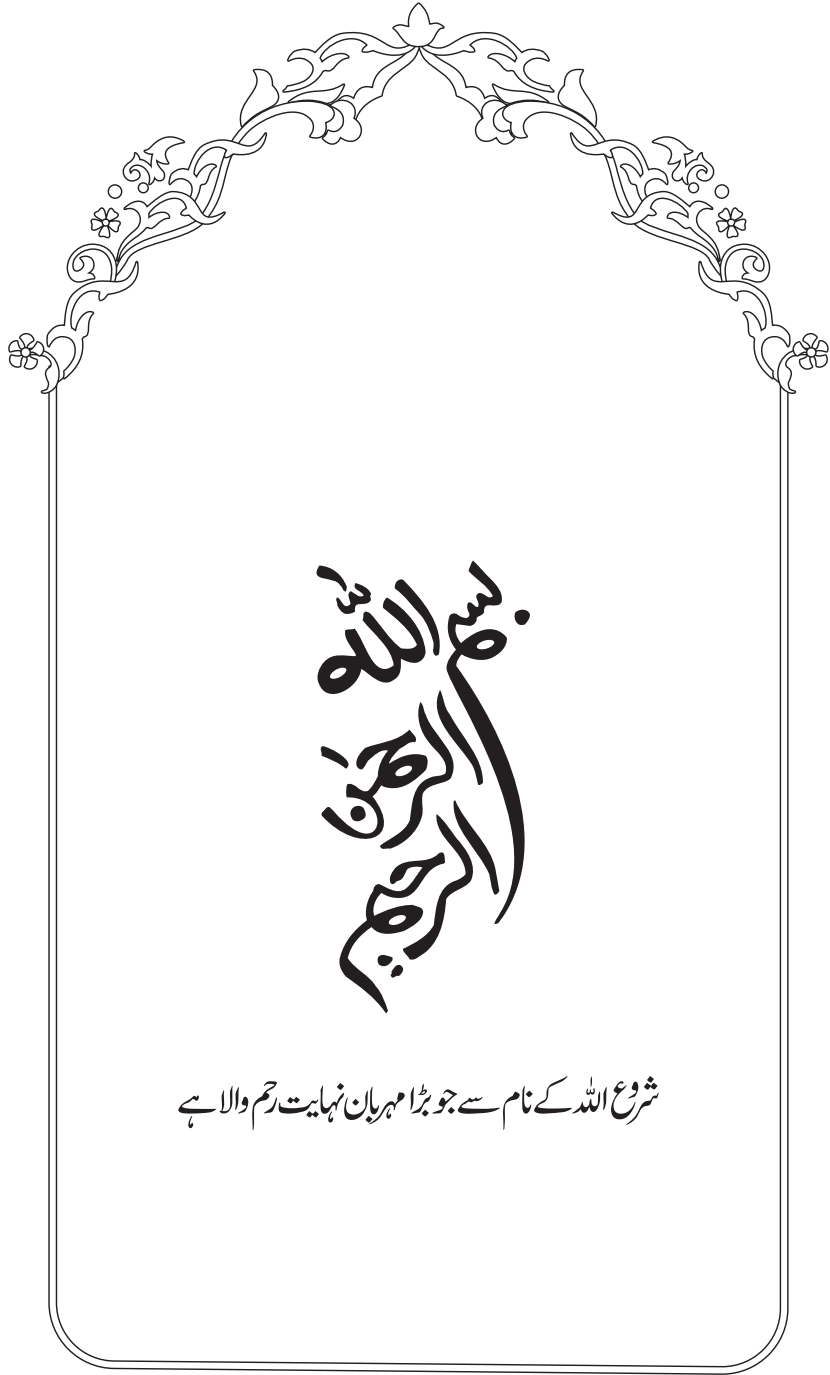 بسم الله
الرحمٰن
الرحيم
شروع اللہ کے نام سے جو بڑا مہربان نہایت رحم والا ہے